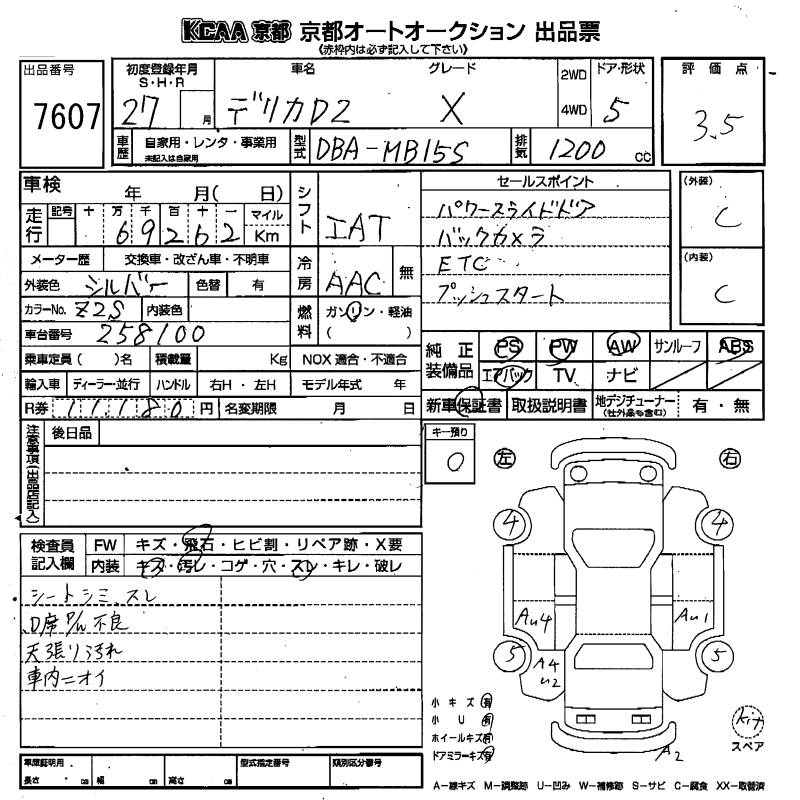 KCAA 京都 京都オートオークション 出品票
《赤枠内は必ず記入して下さい》
出品番号
7607
初度登録年月
S・H・R
27 月
車名
デリカD2
グレード
X
2WD
4WD
ドア・形状
5
評価点
3.5
車歴
自家用・レンタ・事業用
未記入は自家用
型式
DBA-MB15S
排気
1200 cc
車検 年 月( 日)
走行
記号 十 万 千 百 十 一 マイル
6 9 2 6 2 Km
シフト
IAT
メーター歴 交換車・改ざん車・不明車
外装色 シルバー 色替 有
冷房
AAC
無
カラーNo. Z2S 内装色
車台番号 258100
燃料
ガソリン・軽油
( )
乗車定員( )名 積載量 Kg NOX適合・不適合
輸入車 ディーラー・並行 ハンドル 右H・左H モデル年式 年
R券 11180 円 名変期限 月 日
セールスポイント
パワースライドドア
バックカメラ
ETC
プッシュスタート
(外装)
C
(内装)
C
純正装備品
PS PW AW サンルーフ ABS
エアバック TV ナビ
新車保証書 取扱説明書 地デジチューナー
(社外品も含む)
有・無
注意事項(出品店記入)
後日品
キー預り
0
左
右
検査員記入欄
FW キズ・飛石・ヒビ割・リペア跡・X要
内装 キズ・汚レ・コゲ・穴・スレ・キレ・破レ
シートシミ、スレ
D席P/W不良
天張り汚れ
車内ニオイ
4
4
AU4
AU1
5
5
A4
U2
A2
小キズ 有
小U 有
ホイールキズ 有
ドアミラーキズ 有
kit
スペア
車庫証明用
長さ cm 幅 cm 高さ cm
型式指定番号
類別区分番号
A−線キズ M−調整跡 U−凹み W−補修跡 S−サビ C−腐食 XX−取替済